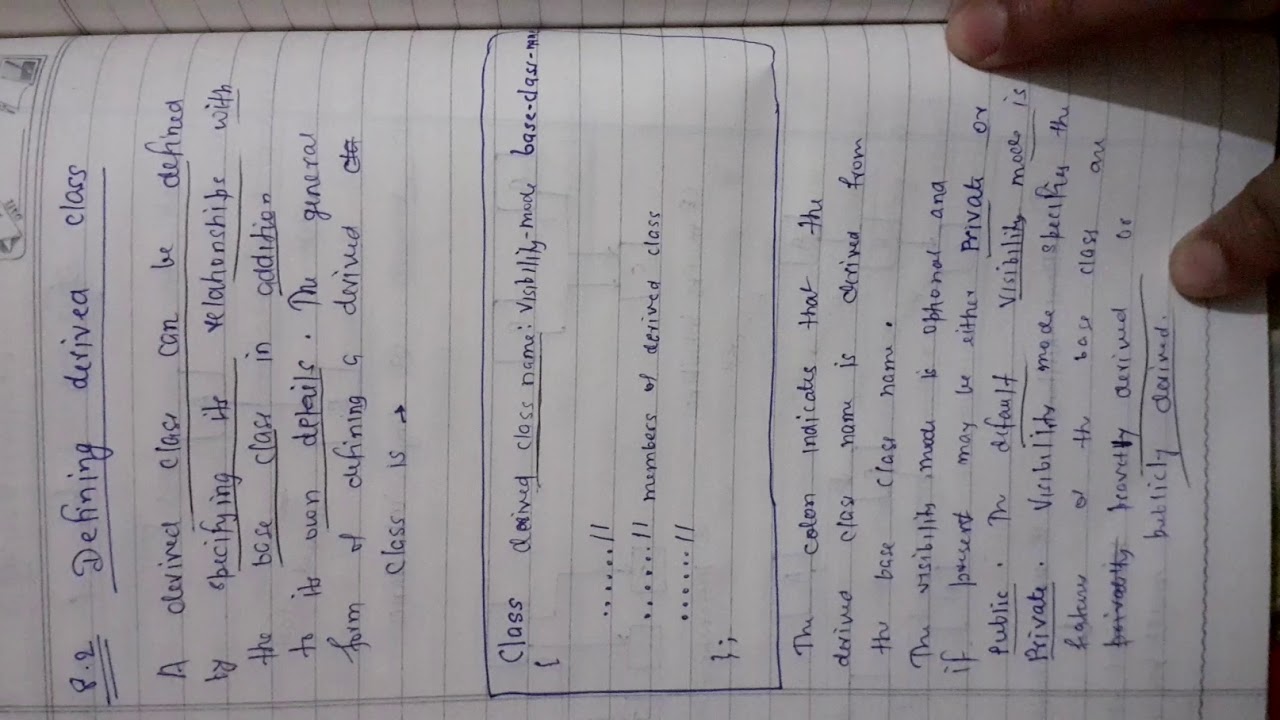 8.2 Defining derived class
A derived class can be defined
by specifying its relationships with
the base class in addition
to its own details. The general
form of defining a derived
class is →
Class derived class name: visibility-mode base-class-
{
......//
......// members of derived class
.......//
};
The colon indicates that the
derived class name is derived from
the base class name.
The visibility mode is optional and
if present may be either Private or
Public. The default visibility mode is
Private. Visibility mode specifies the
features of the base class are
privately derived or
publicly derived.